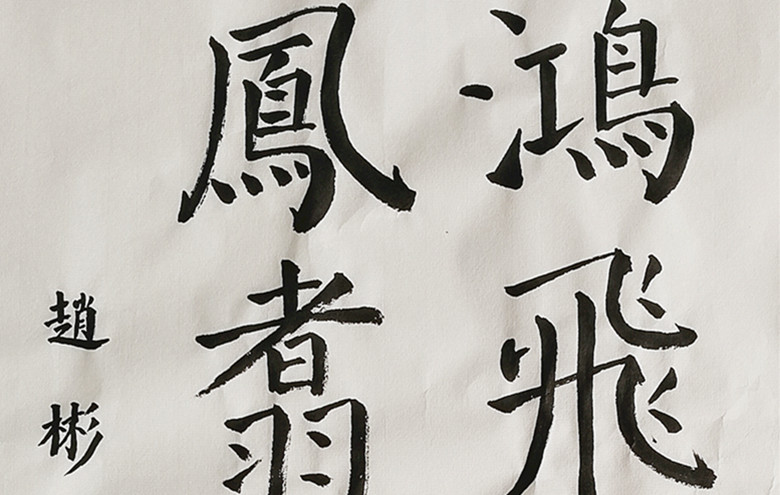 鴻飛
鳳翥
趙彬